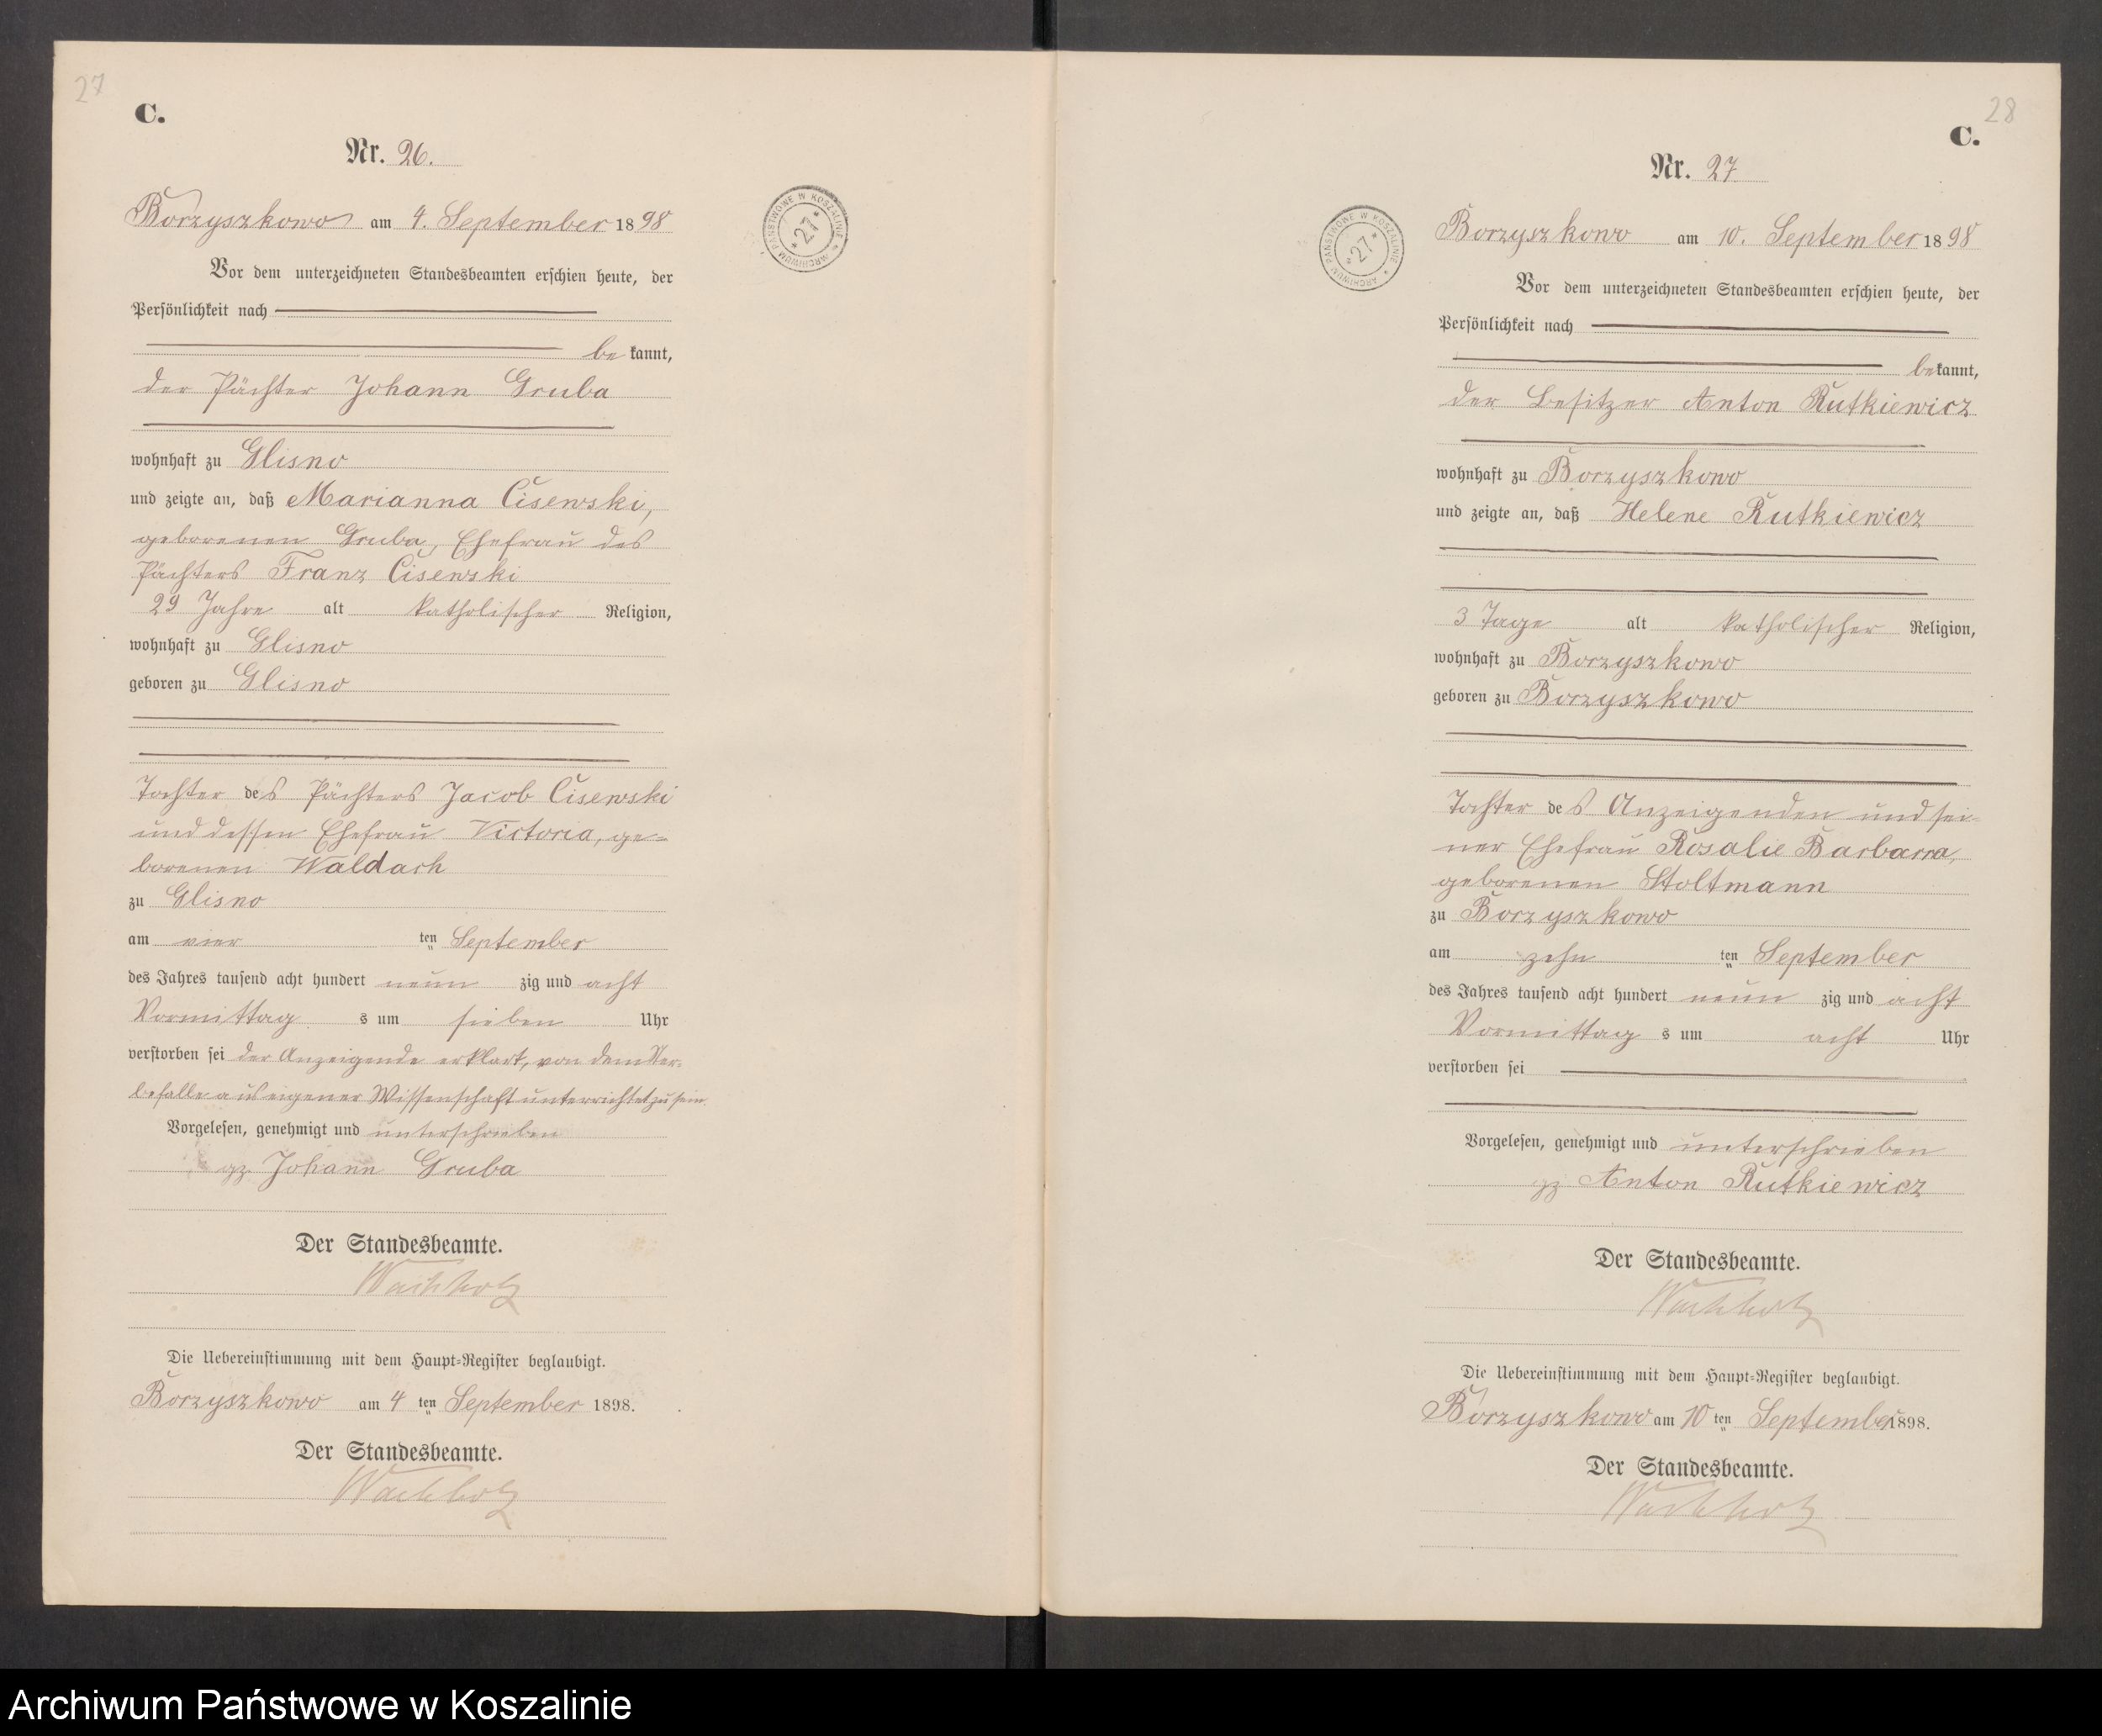 27
C.
Nr. 26.
Borzyszkowo am 4. September 1898
Vor dem unterzeichneten Standesbeamten erschien heute, der
Persönlichkeit nach
be kannt,
der Pächter Johann Gruba
wohnhaft zu Glisno
und zeigte an, daß Marianna Cisewski,
geborenen Gruba, Ehefrau des
Pächters Franz Cisewski
29 Jahre alt katholischer Religion,
wohnhaft zu Glisno
geboren zu Glisno
Tochter des Pächters Jacob Cisewski
und dessen Ehefrau Victoria, ge=
borenen Waldach
zu Glisno
am vier ten September
des Jahres tausend acht hundert neun zig und acht
Vormittag s um sieben Uhr
verstorben sei der Anzeigende erklärt, von dem Ster=
befalle aus eigener Wissenschaft unterrichtet zu sein.
Vorgelesen, genehmigt und unterschrieben
gz Johann Gruba
Der Standesbeamte.
Wachholz
Die Uebereinstimmung mit dem Haupt=Register beglaubigt.
Borzyszkowo am 4 ten September 1898.
Der Standesbeamte.
Wachholz
ARCHIWUM PAŃSTWOWE W KOSZALINIE
*27*
28
C.
Nr. 27
Borzyszkowo am 10. September 1898
Vor dem unterzeichneten Standesbeamten erschien heute, der
Persönlichkeit nach
bekannt,
der Besitzer Anton Rutkiewicz
wohnhaft zu Borzyszkowo
und zeigte an, daß Helene Rutkiewicz
3 Tage alt katholischer Religion,
wohnhaft zu Borzyszkowo
geboren zu Borzyszkowo
Tochter des Anzeigenden und sei=
ner Ehefrau Rosalie Barbarra,
geborenen Stoltmann
zu Borzyszkowo
am zehn ten September
des Jahres tausend acht hundert neun zig und acht
Vormittag s um acht Uhr
verstorben sei
Vorgelesen, genehmigt und unterschrieben
gz Anton Rutkiewicz
Der Standesbeamte.
Wachholz
Die Uebereinstimmung mit dem Haupt=Register beglaubigt.
Borzyszkowo am 10 ten September 1898.
Der Standesbeamte.
Wachholz
ARCHIWUM PAŃSTWOWE W KOSZALINIE
*27*
Archiwum Państwowe w Koszalinie